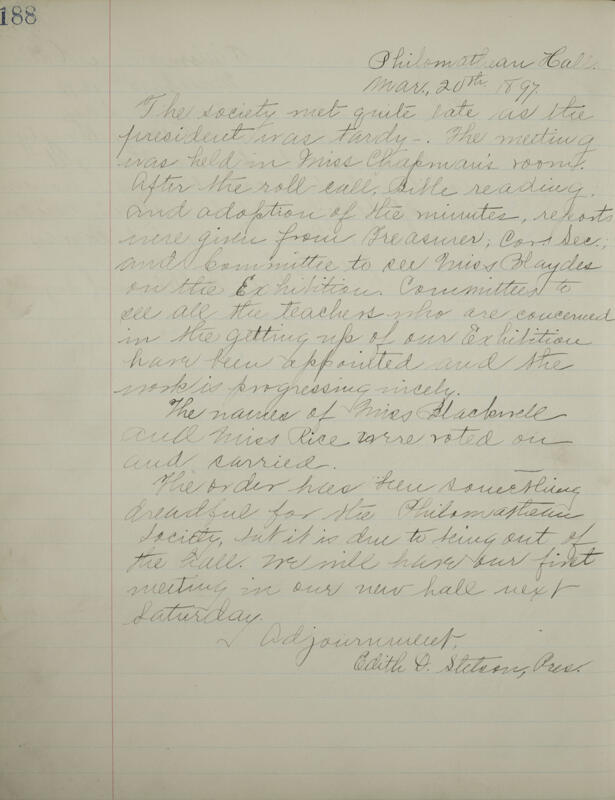 188
Philomathean Hall.
Mar., 20th 1897.
The society met quite late as the
president was tardy-. The meeting
was held in Miss Chapman's room.
After the roll call, Bible reading,
and adoption of the minutes, reports
were given from Treasurer; Cor. Sec.;
and Committee to see Miss Blaydes
on the Exhibition. Committees to
see all the teachers who are concerned
in the getting up of our Exhibition
have been appointed and the
work is progressing nicely.
The names of Miss Blackwell
and Miss Rice were voted on
and carried.
The order has been something
dreadful for the Philomathean
Society, but it is due to being out of
the hall. We will have our first
meeting in our new hall next
Saturday.
Adjournment.
Edith D. Stetson, Pres.